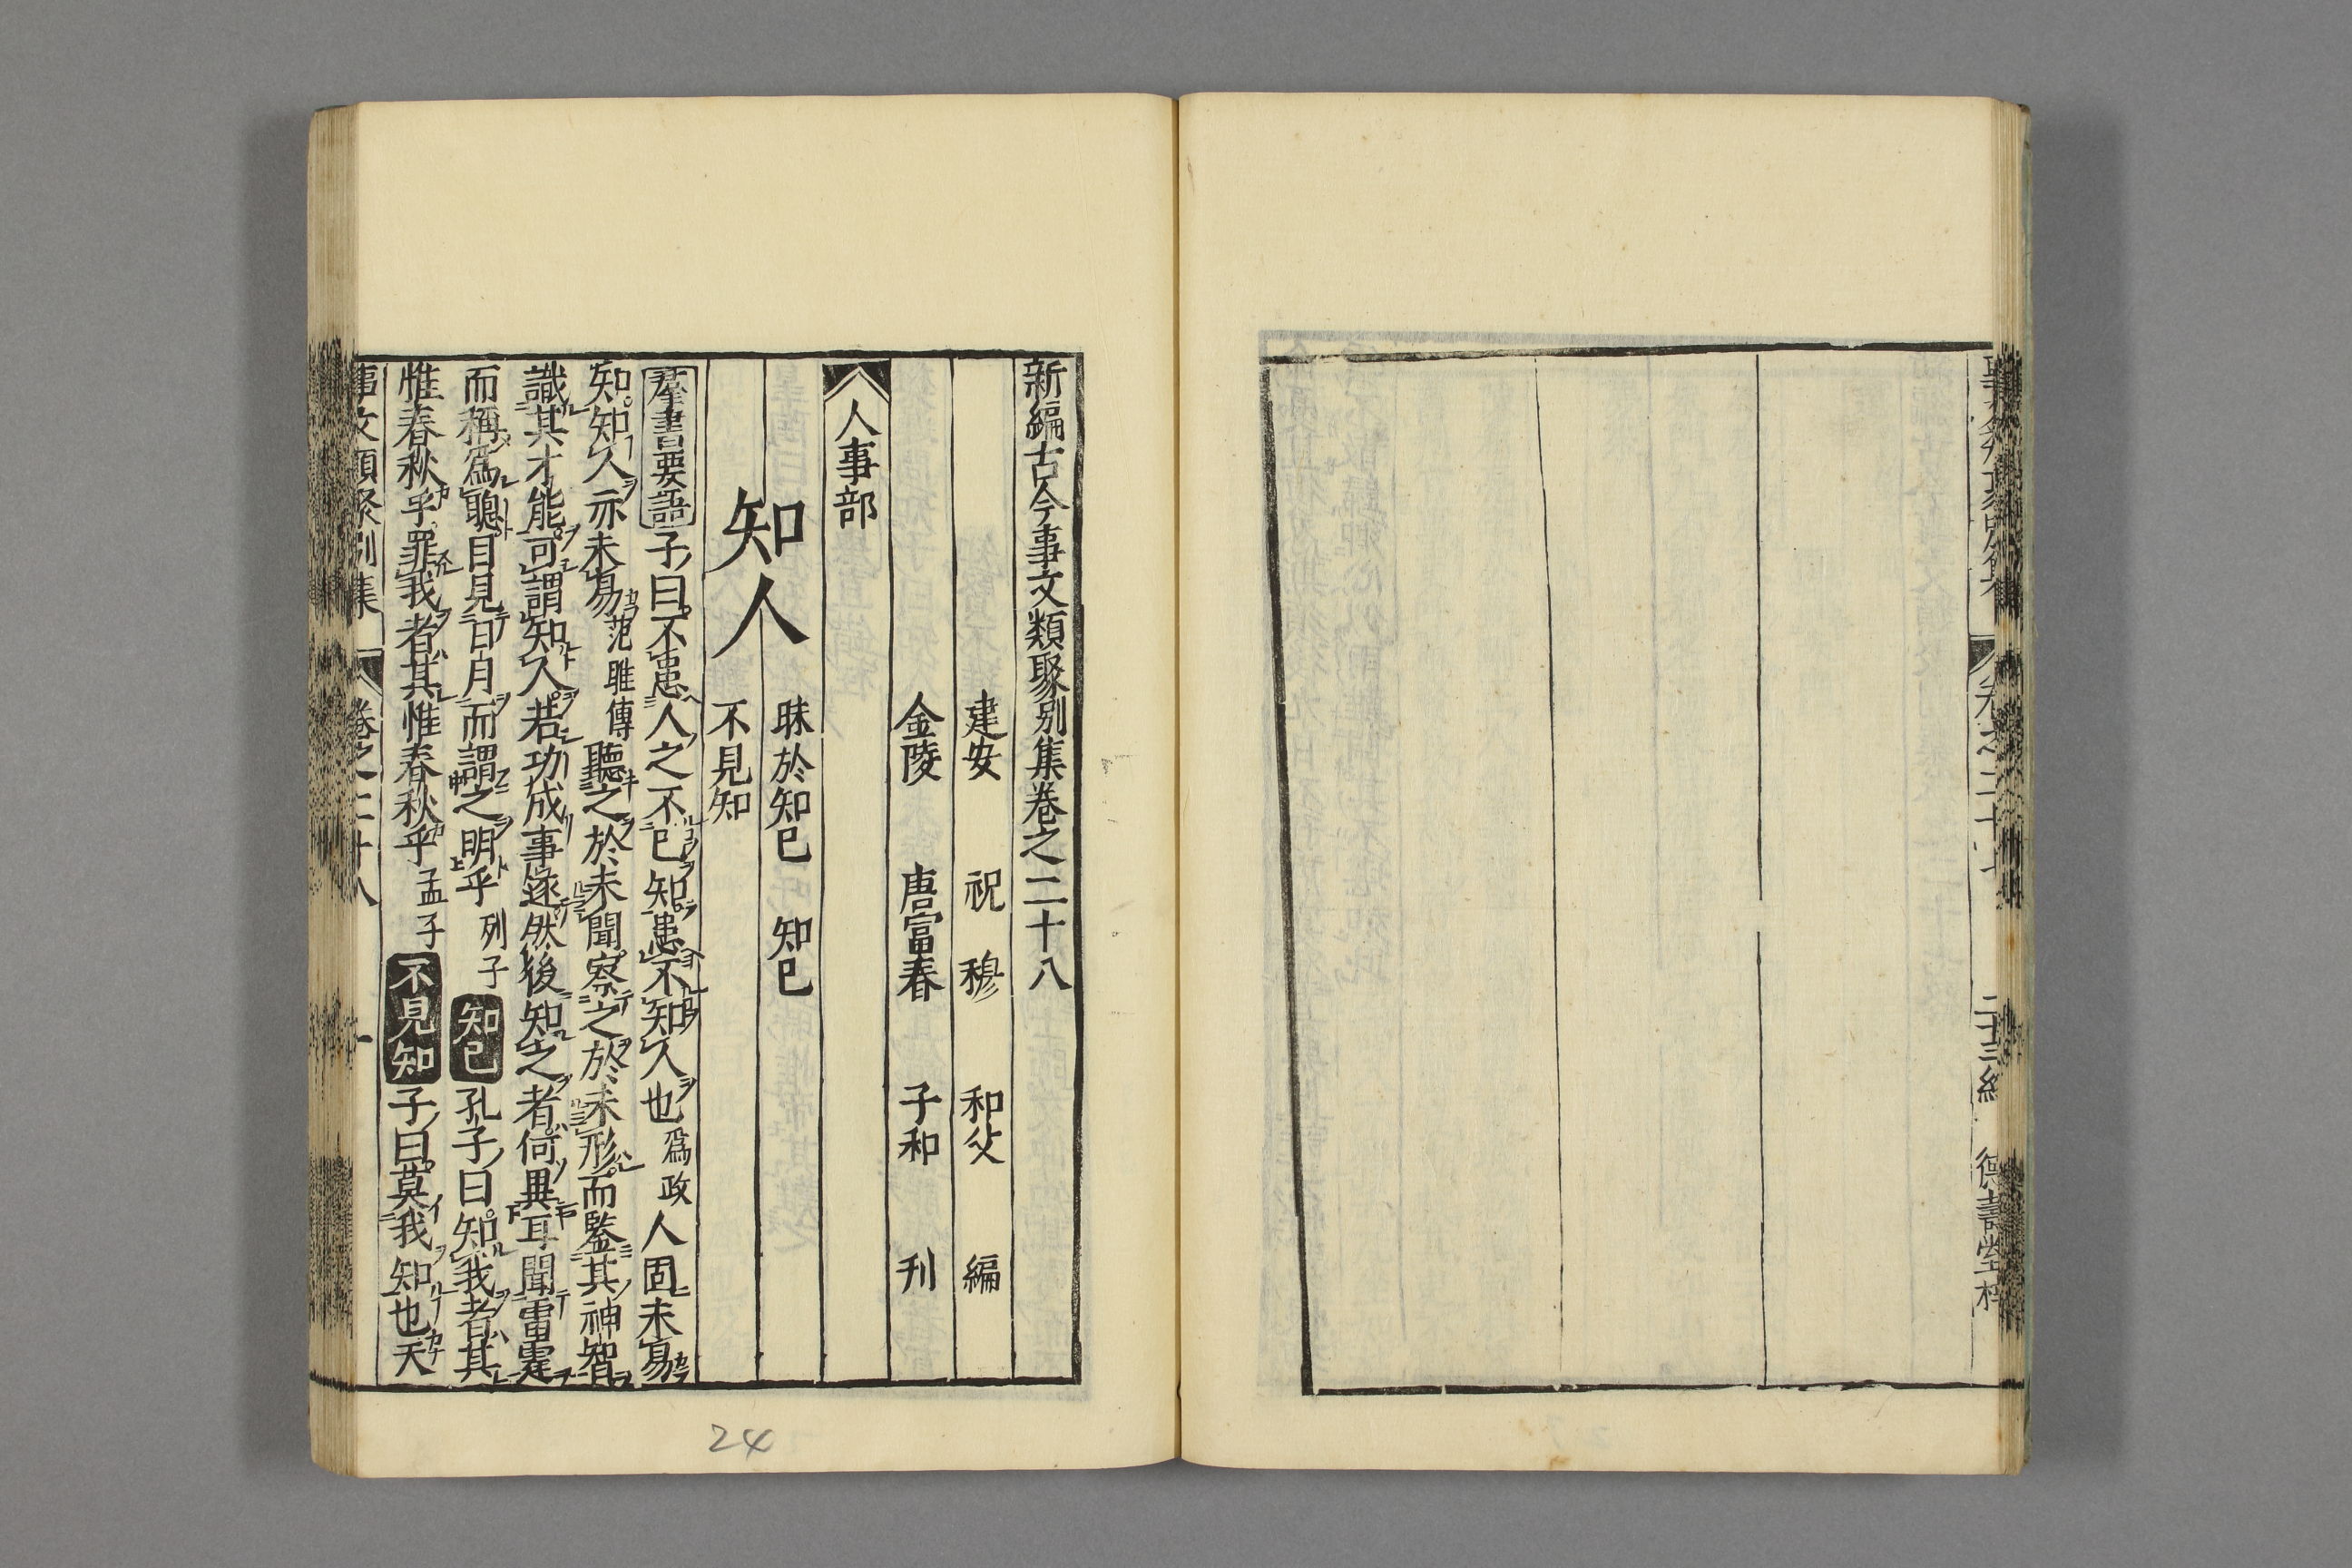 新編古今事文類聚別集卷之二十八
建安 祝 穆 和父 編
金陵 唐富春 子和 刊
人事部
知人
昧於知已 知已
不見知
羣書要語 子曰不患人之不已知患不知人也 爲政 人固未易
知知人亦未易 范雎傳 聽之於未聞察之於未形而監其神智
識其才能可謂知人若功成事遂然後知之者何異耳聞雷霆
而稱爲聰目見日月而謂之明乎 列子 知已 孔子曰知我者其
惟春秋乎罪我者其惟春秋乎 孟子 不見知 子曰莫我知也天
事文類聚別集 卷之二十八 一
24
卷之二十七 二十三終 德壽堂梓